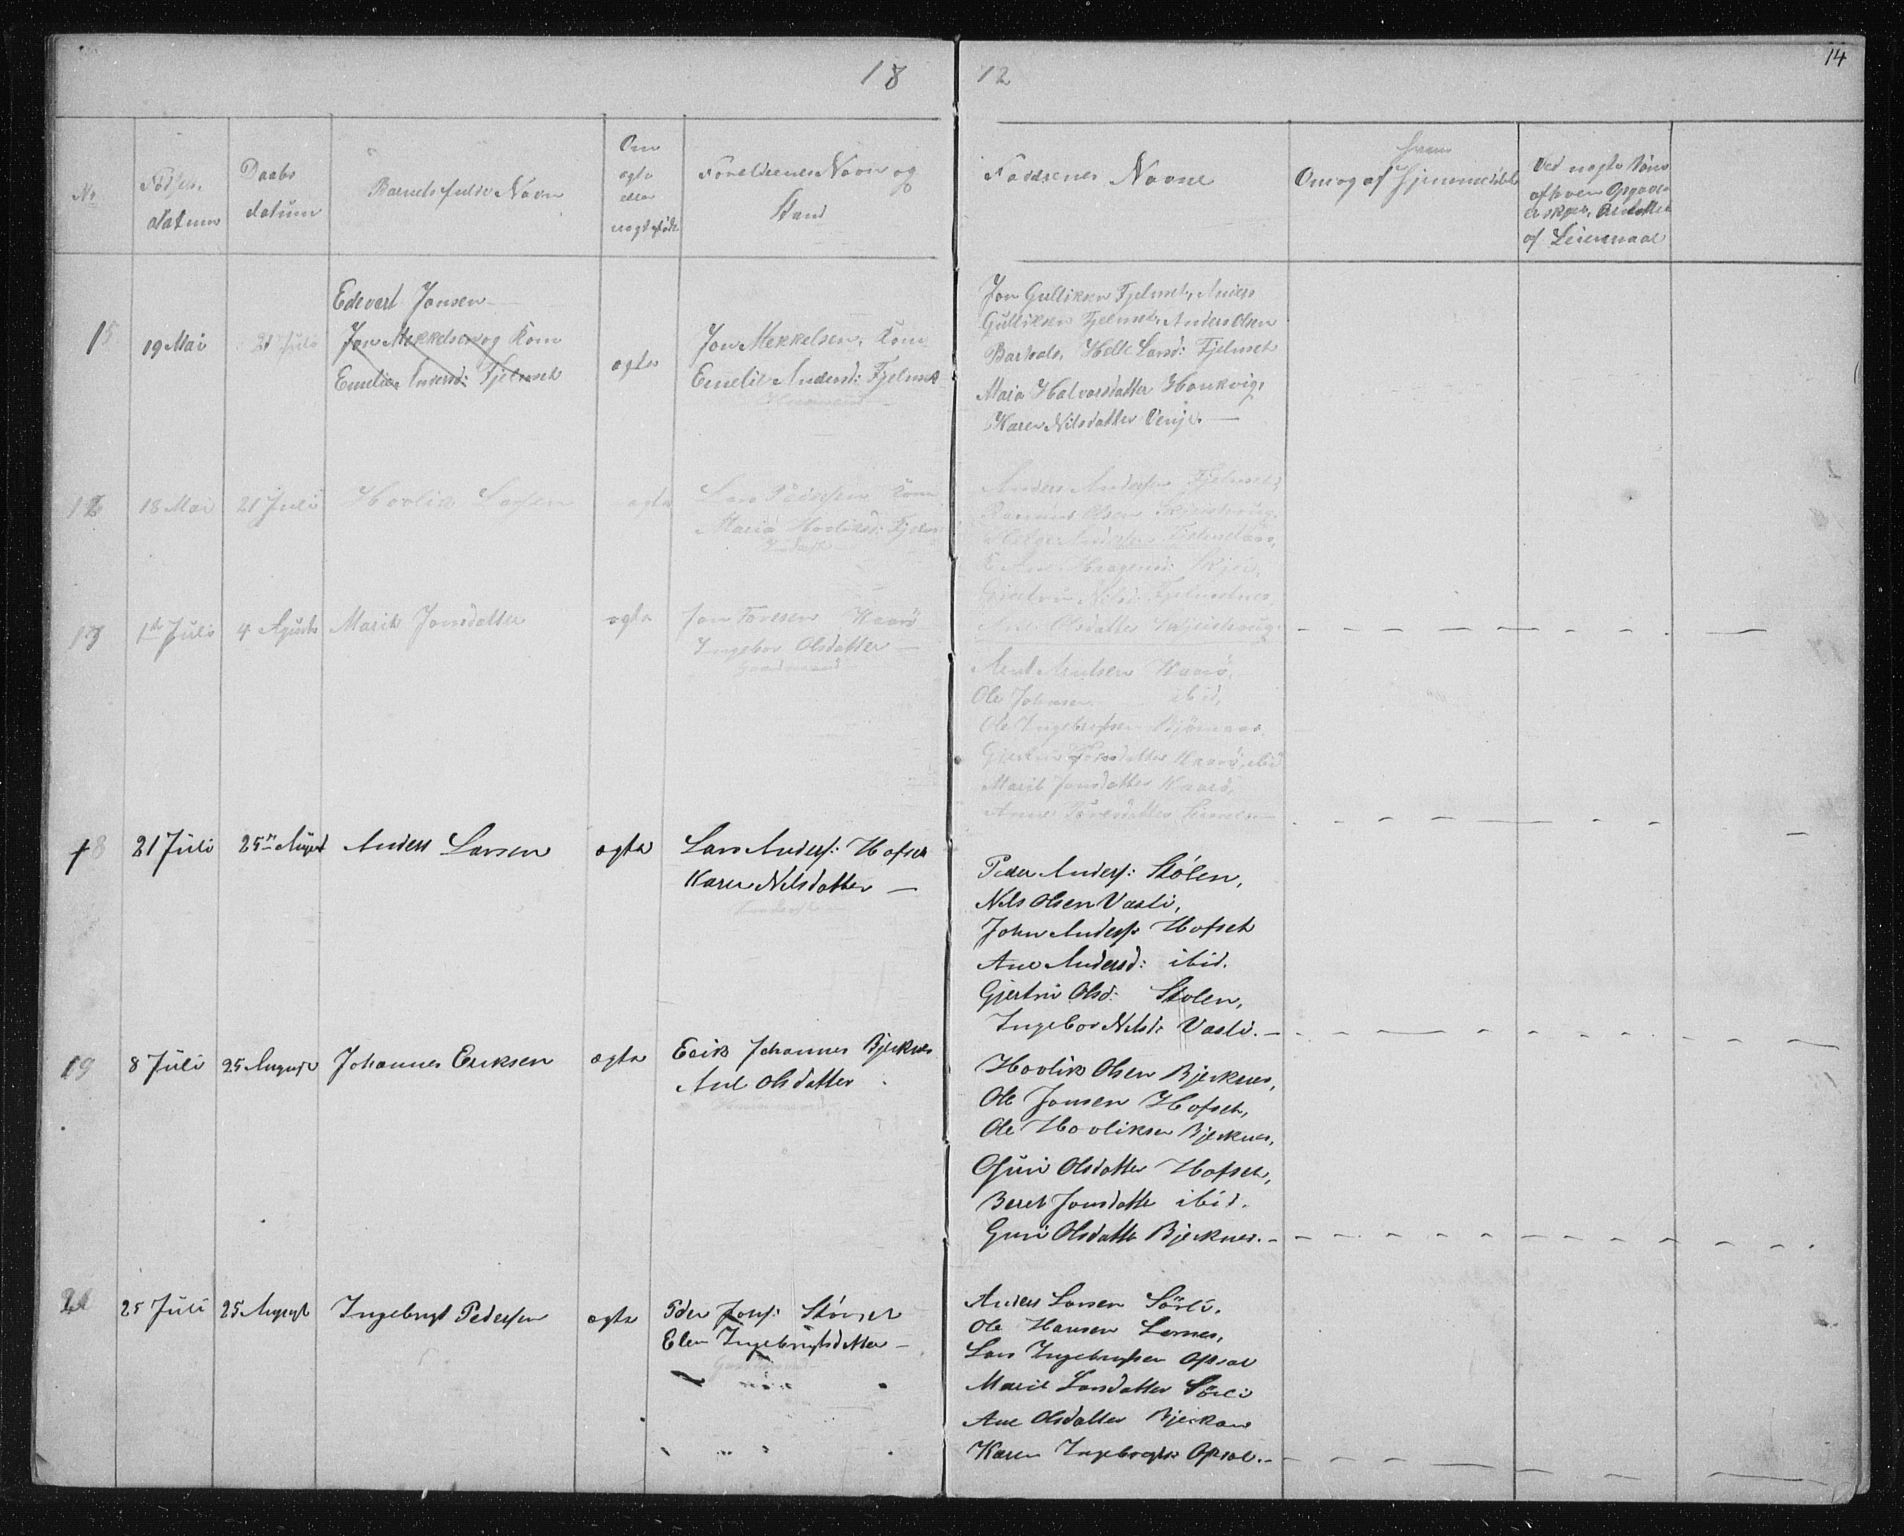 18 72
14
No
Fødsels datum
Daabs datum
Barnets fulde Navn
Om ægte eller uægtefødt
Foreldrenes Navn og Stand
Faddrenes Navne
Om og af hvem Hjemmedøbt
Ved uægte Børn af hvem Opgaven er skjed,
af Leiermaal
15 19 Mai 21 Juli
Edevart Jonsen
Jon Mekkelsen og Kone
Emelie Andersd: Fjelnset
ægte
Jon Mekkelsen, Kone
Emelie Andersd: Fjelnset
Jon Gulliksen Fjelnset, Anders
Gulliksen Fjelnset, Anders Olsen
Helle Larsd: Fjelnset
Maria Halvorsdatter Haukvig,
Karen Nilsdatter Venje. —
16 18 Mai 21 Juli Hovlik Larsen ægte
Lars Kone
Maria Hovliksd: Fjelns
Anders Andersen Fjelnset,
Rasmus Olsen
Andersen
Ane Haagensd: Skjei,
Gjertru Nilsd:
Olsdatter
17 1st Juli 4 Agusts Marit Jonsdatter ægte
Jon Toresen Kaarø
Ingebor Olsdatter —
Gaardmand
Arnt Arntsen Kaarø,
Ole Johnsen ibid,
Ole Ingebrigtsen
Gjertru Toresdatter Kaarø, ibid
Marit Jonsdatter Kaarø,
Anne Toresdatter
18 21 Juli 25n August Anders Larsen ægte
Lars Anders: Hofset
Karen Nilsdatter —
Peder Anders: Stølen,
Nils Olsen Vasli,
John Anders: Hofset
Ane Andersd: ibid.
Gjertru Olsd: Stølen,
Ingebor Nilsd: Vasli. —
19 8 Juli 25 August Johannes Eriksen ægte
Erik Johannes Bjerknes
Ane Olsdatter
Hovlik Olsen Bjerknes,
Ole Jonsen Hofset,
Ole Hovliksen Bjerknes,
Guri Olsdatter Hofset,
Beret Jonsdatte ibid.
Guri Olsdatte Bjerknes. —
20 25 Juli 25 August Ingebrigt Pedersen ægte
Peder Jons: Størset
Elen Ingebrigtsdatter —
Anders Larsen Sørli.
Ole Hansen Lernes,
Lars Ingebrigtsen Opsal
Marit Larsdatter Sørli
Ane Olsdatter Bjerkan
Karen Ingebrigts: Opsal. —